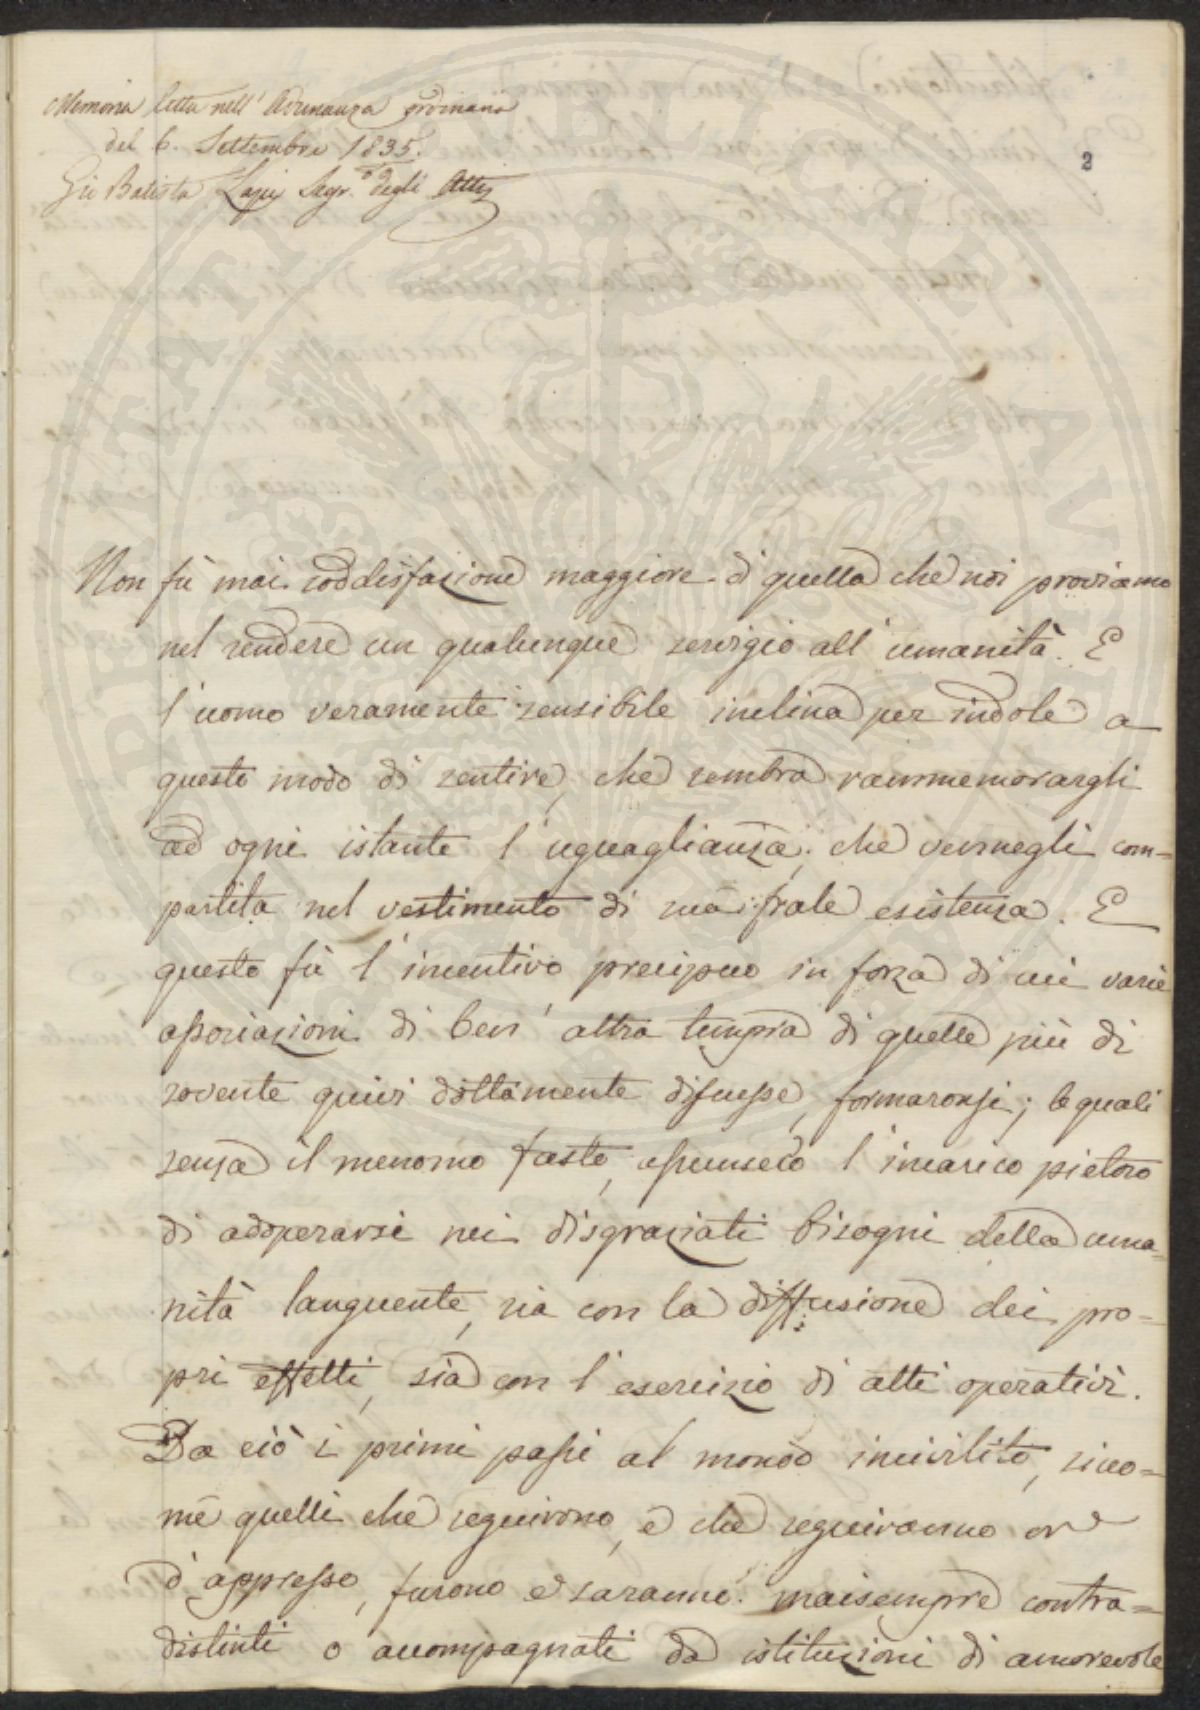 Memoria letta nell' Adunanza ordinaria
del 6. Settembre 1835.
Gio Batista Lapi Segr. degli Atti
2
Non fù mai soddisfazione maggiore di quella che noi proviamo
nel rendere un qualunque servigio all' umanità. E
l' uomo veramente sensibile inclina per indole a
questo modo di sentire, che sembra rammemorargli
ad ogni istante l' uguaglianza, che vennegli com=
partita nel vestimento di sua frale esistenza. E
questo fù l' incentivo precipuo in forza di cui varie
associazioni di ben' altra tempra di quelle più di
sovente quivi dottamente discusse, formaronsi; le quali
senza il menomo fasto, assunsero l' incarico pietoso
di adoperarsi nei disgraziati bisogni della uma=
nità languente, sia con la diffusione dei pro=
pri effetti, sia con l' esercizio di atti operativi.
Da ciò i primi passi al mondo incivilito, sicco=
me quelli che seguirono, e che seguiranno or
d' appresso, furono e saranno maisempre contra=
distinti o accompagnati da istituzioni di amorevole
PUBLICAE